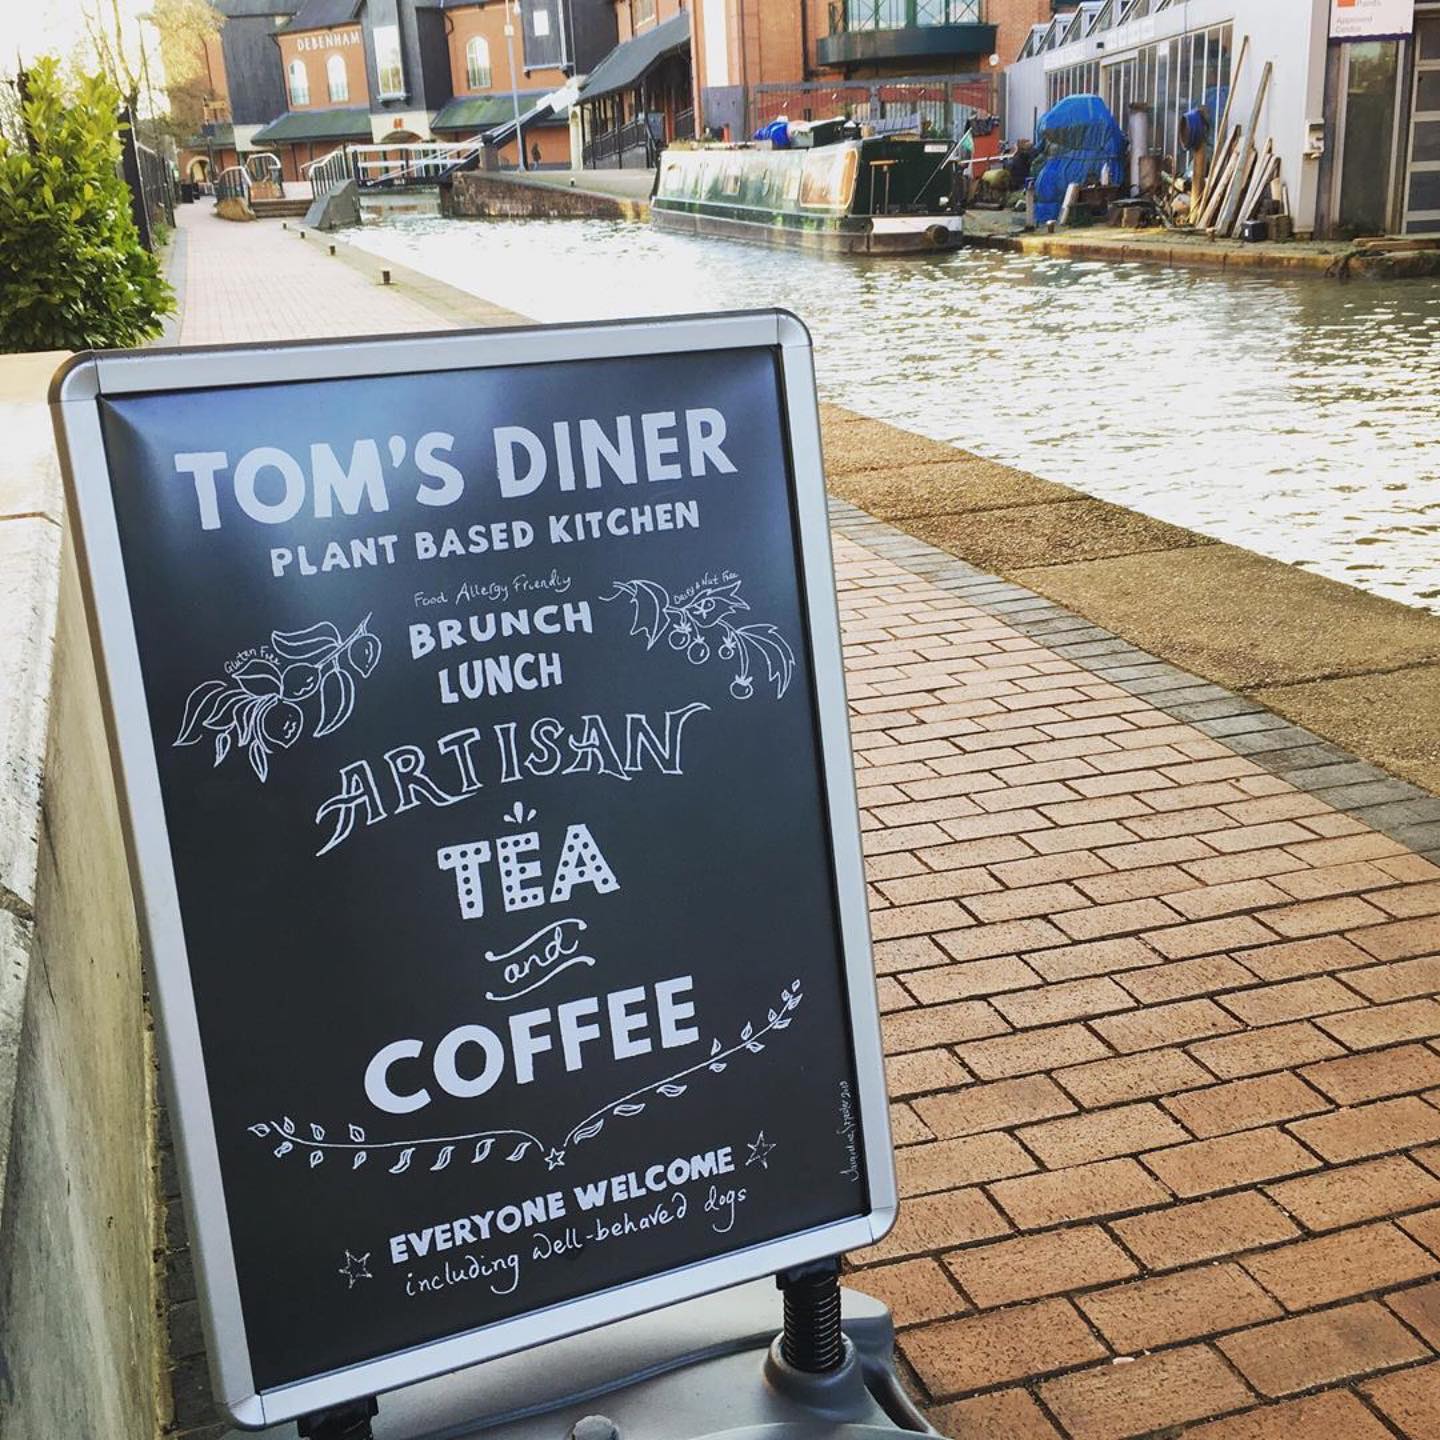 DEBENHAM
Paints
Approved
Centre
TOM'S DINER
PLANT BASED KITCHEN
Food Allergy Friendly
Dairy & Nut Free
BRUNCH
LUNCH
Gluten Free
ARTISAN
TEA
and
COFFEE
EVERYONE WELCOME
including well-behaved dogs